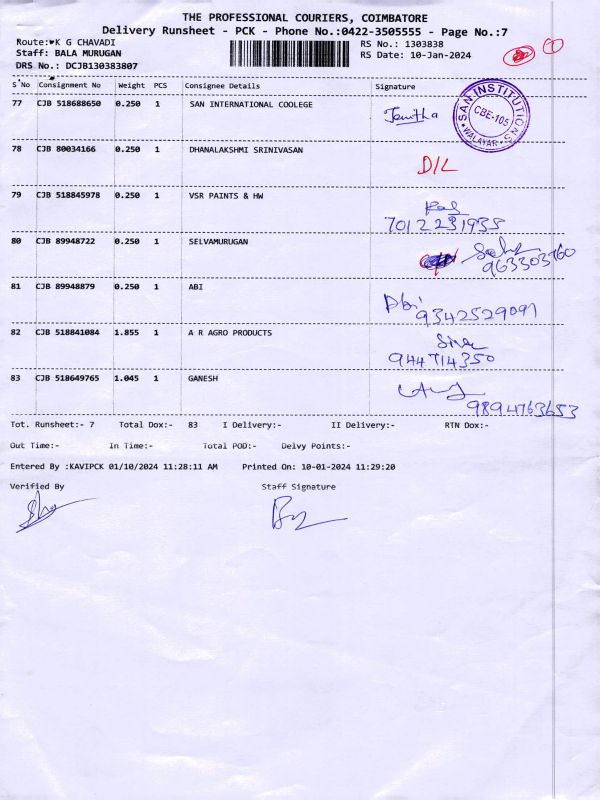 THE PROFESSIONAL COURIERS, COIMBATORE
Delivery Runsheet - PCK - Phone No.:0422-3505555 - Page No.:7
Route:♥K G CHAVADI RS No.: 1303838
Staff: BALA MURUGAN RS Date: 10-Jan-2024
DRS No.: DCJB130383807
S No Consignment No Weight PCS Consignee Details Signature
77 CJB 518688650 0.250 1 SAN INTERNATIONAL COOLEGE Jenitha
SAN INSTITUTIONS
CBE-105
WALAYAR
78 CJB 80034166 0.250 1 DHANALAKSHMI SRINIVASAN
D/L
79 CJB 518845978 0.250 1 VSR PAINTS & HW
7012231935
80 CJB 89948722 0.250 1 SELVAMURUGAN
81 CJB 89948879 0.250 1 ABI Abi
9342529091
82 CJB 518841084 1.855 1 A R AGRO PRODUCTS Siva
944714350
83 CJB 518649765 1.045 1 GANESH
9894763653
Tot. Runsheet:- 7 Total Dox:- 83 I Delivery:- II Delivery:- RTN Dox:-
Out Time:- In Time:- Total POD:- Delvy Points:-
Entered By :KAVIPCK 01/10/2024 11:28:11 AM Printed On: 10-01-2024 11:29:20
Verified By Staff Signature